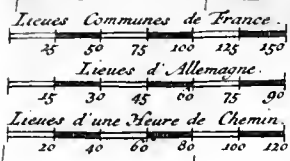 Lieues Communes de France.
25 50 75 100 125 150
Lieues d'Allemagne.
15 30 45 60 75 90
Lieues d'une Heure de Chemin.
20 40 60 80 100 120